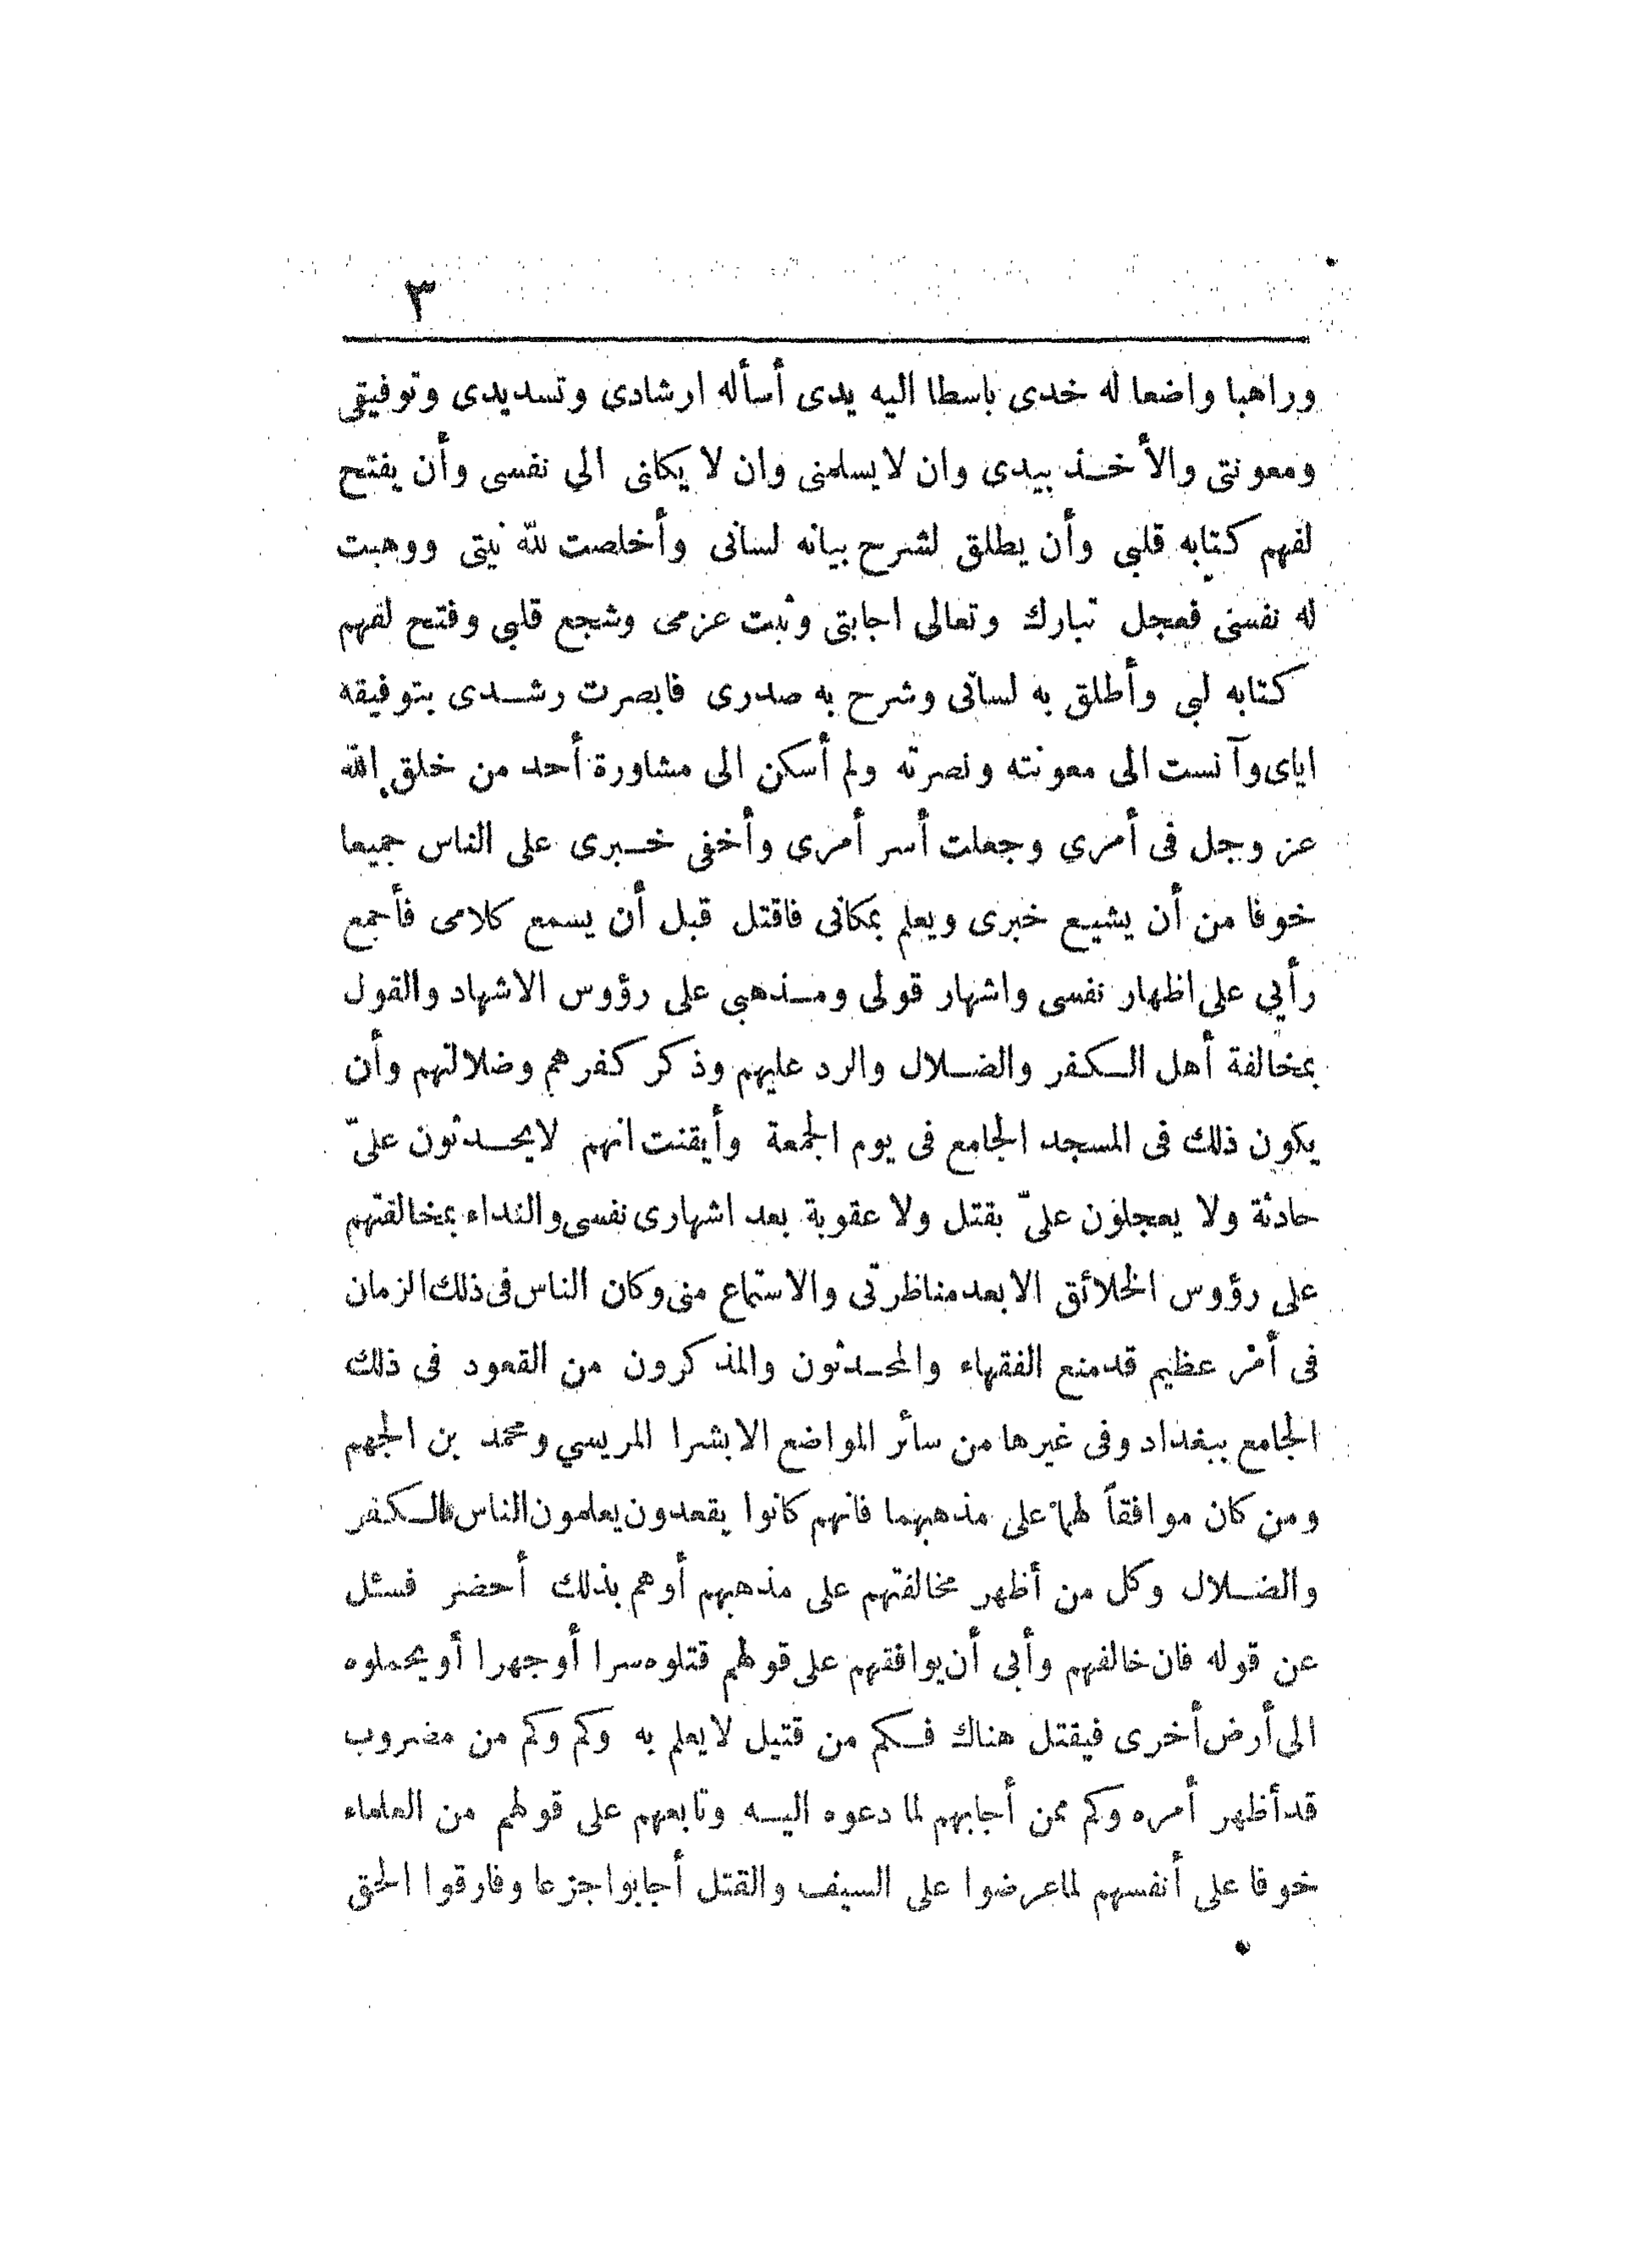 ٣
وراهبا واضعا له خدى باسطا اليه يدى أسأله ارشادى وتسديدى وتوفيقى
ومعونتى والأخذ بيدى وان لا يسلمنى وان لا يكلنى الي نفسى وأن يفتح
لفهم كتابه قلبي وأن يطلق لشرح بيانه لسانى وأخلصت لله نيتى ووهبت
له نفسى فعجل تبارك وتعالى اجابتى وثبت عزمى وشجع قلبي وفتح لفهم
كتابه لبى وأطلق به لسانى وشرح به صدرى فابصرت رشدى بتوفيقه
اياى وآنست الى معونته ونصرته ولم أسكن الى مشاورة أحد من خلق الله
عز وجل فى أمرى وجعلت أسر أمرى وأخفى خبرى على الناس جميعا
خوفا من أن يشيع خبرى ويعلم بمكانى فاقتل قبل أن يسمع كلامى فأجمع
رأيي على اظهار نفسى واشهار قولى ومذهبى على رؤوس الاشهاد والقول
بمخالفة أهل الكفر والضلال والرد عليهم وذكر كفرهم وضلالتهم وأن
يكون ذلك فى المسجد الجامع فى يوم الجمعة وأيقنت انهم لا يحدثون علىّ
حادثة ولا يعجلون علىّ بقتل ولا عقوبة بعد اشهارى نفسى والنداء بمخالفتهم
على رؤوس الخلائق الا بعد مناظرتى والاستماع منى وكان الناس فى ذلك الزمان
فى أمر عظيم قد منع الفقهاء والمحدثون والمذكرون من القعود فى ذلك
الجامع ببغداد وفى غيرها من سائر المواضع الا بشرا المريسي ومحمد بن الجهم
ومن كان موافقاً لهما على مذهبهما فانهم كانوا يقعدون يعلمون الناس الكفر
والضلال وكل من أظهر مخالفتهم على مذهبهم أوهم بذلك أحضر فسئل
عن قوله فان خالفهم وأبى أن يوافقهم على قولهم قتلوه سرا أو جهرا أو يحملوه
الى أرض أخرى فيقتل هناك فكم من قتيل لا يعلم به وكم وكم من مضروب
قد أظهر أمره وكم ممن أجابهم لما دعوه اليه وتابعهم على قولهم من العلماء
خوفا على أنفسهم لما عرضوا على السيف والقتل أجابوا جزعا وفارقوا الحق